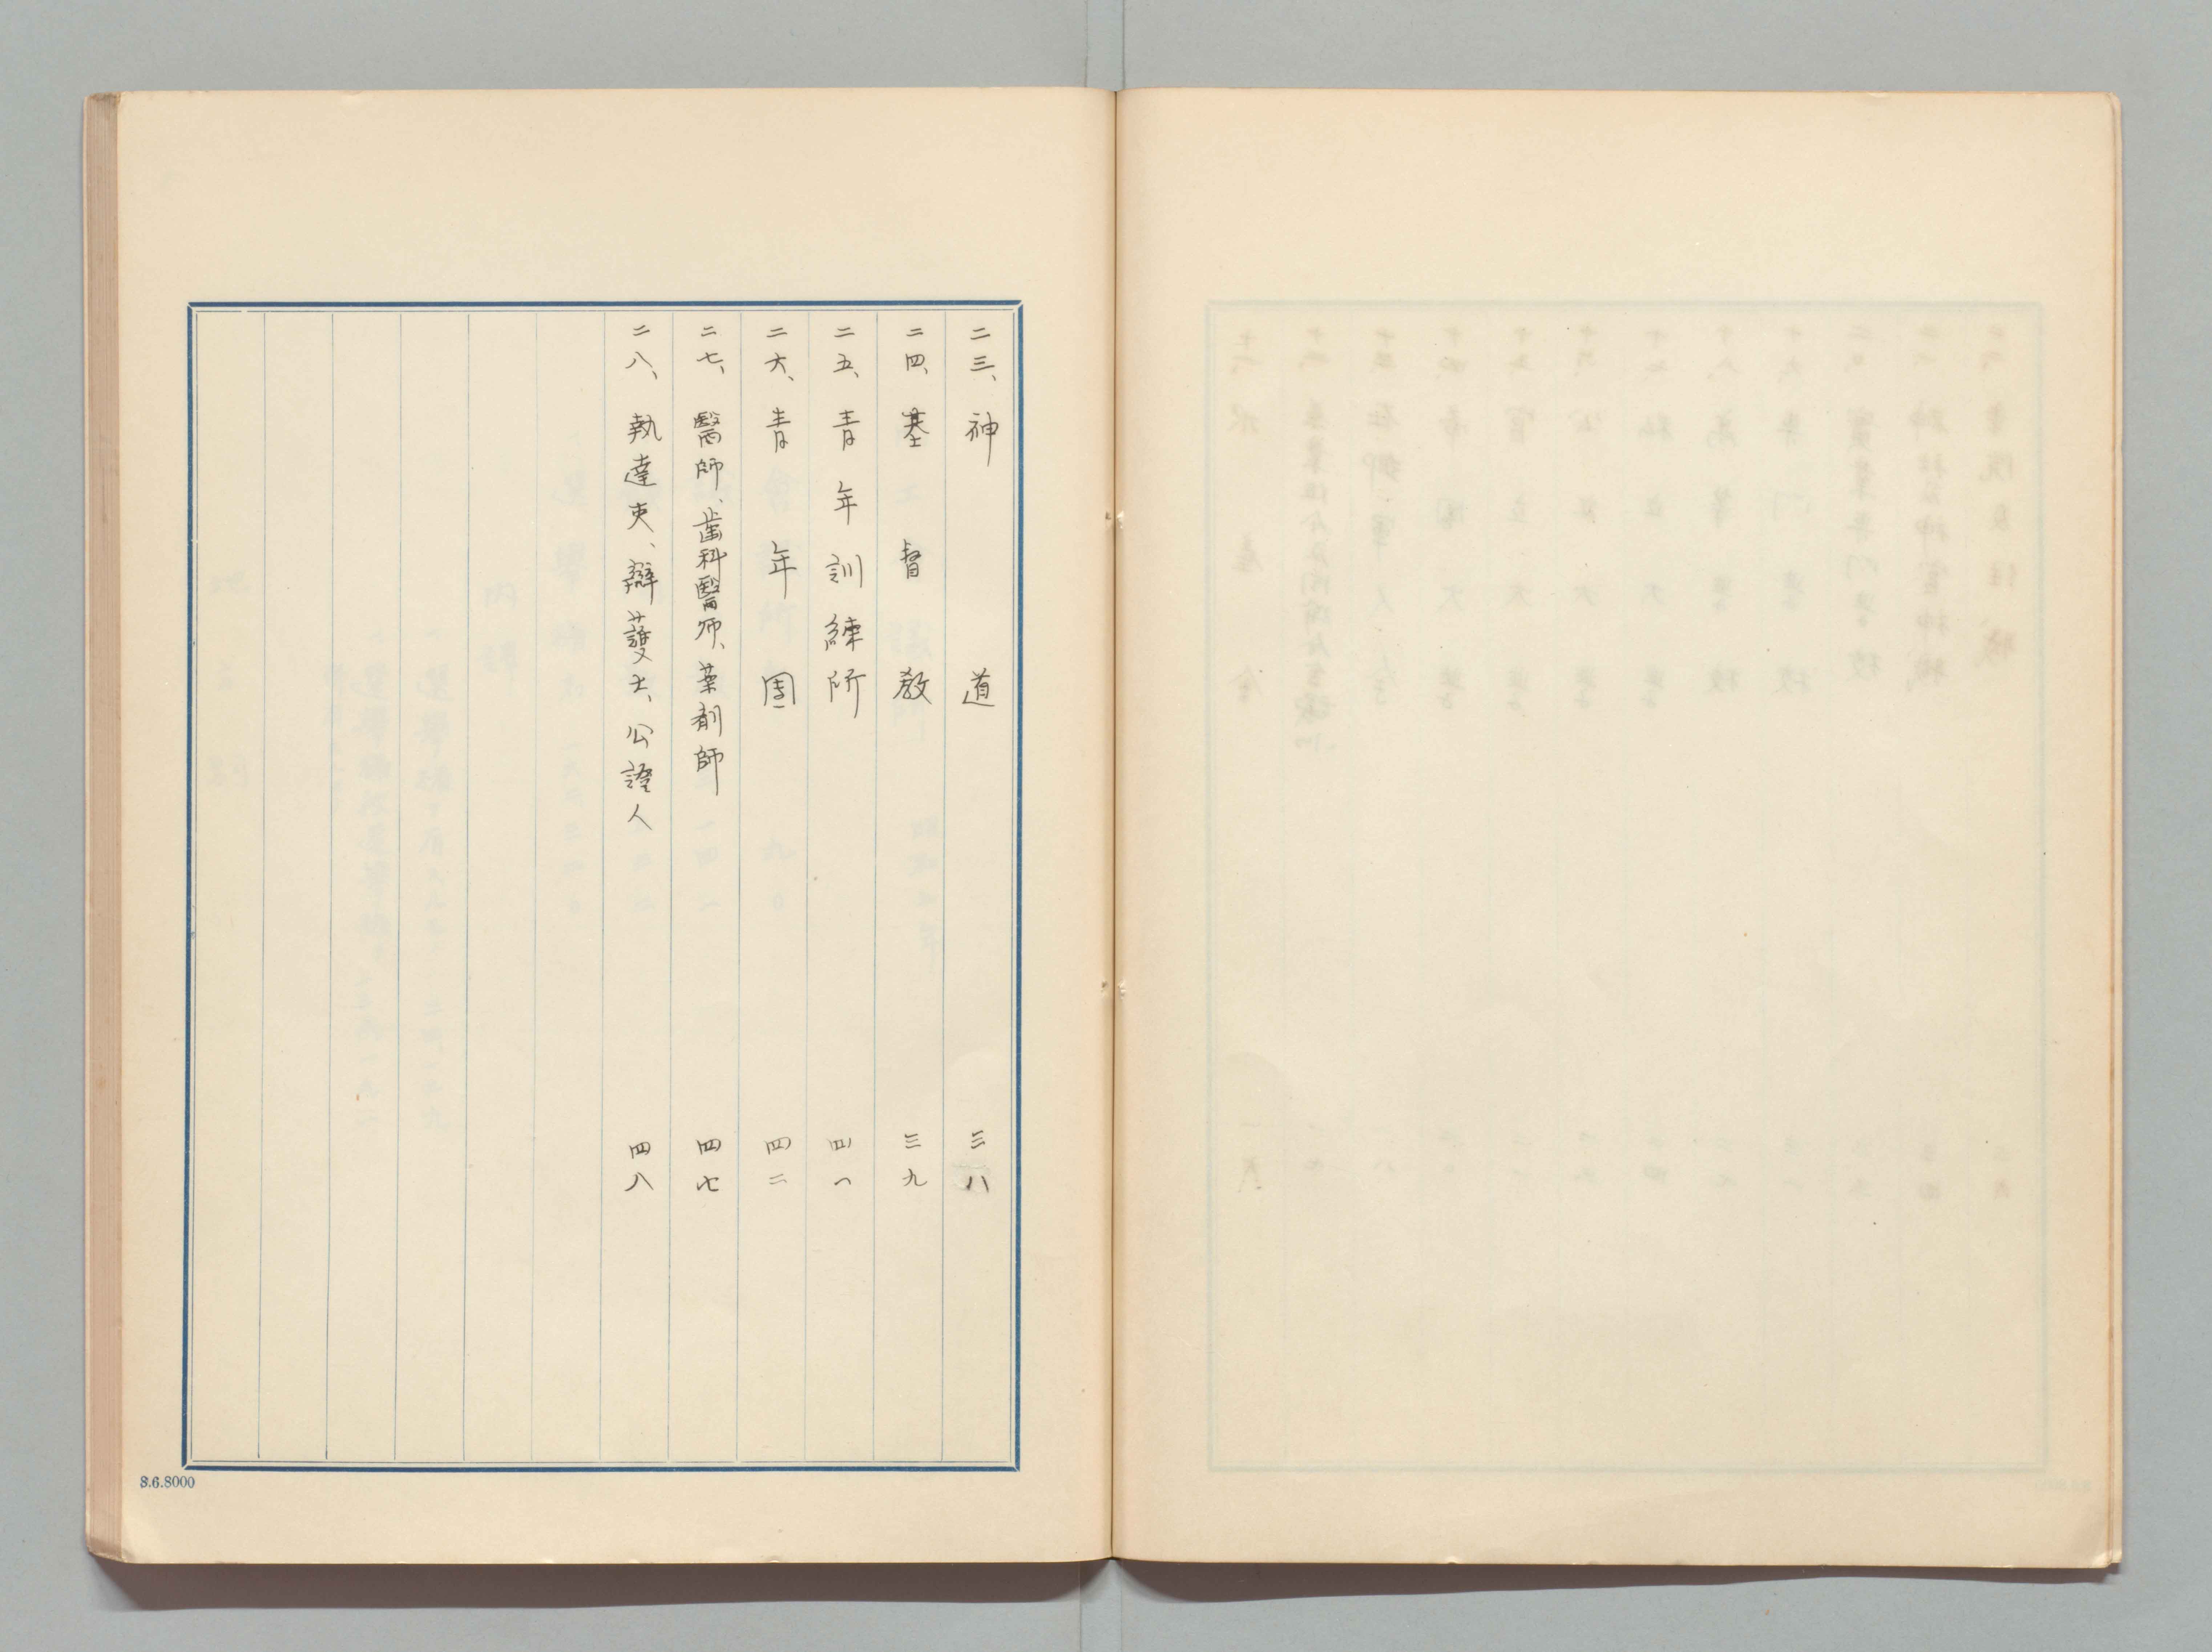 二三、神道 三八
二四、基督教 三九
二五、青年訓練所 四一
二六、青年團 四二
二七、醫師、歯科醫師、薬剤師 四七
二八、執達吏、辯護士、公證人 四八
8.6.8000